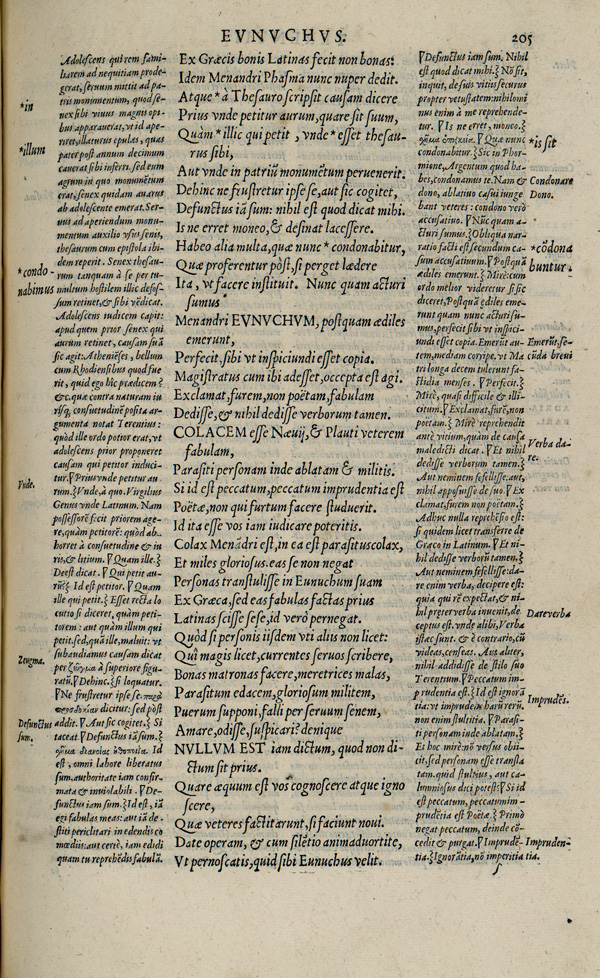 EVNVCHVS.
205
Adolescens qui rem fami-
liarem ad nequitiam prode-
gerat, seruum mittit ad pa-
tris monumentum, quod se-
nex sibi viuus magnis opi-
bus apparauerat, vt id ape-
riret, illaturus epulas, quas
pater post annum decimum
cauerat sibi inferri. sed eum
agrum in quo monumētum
erat, senex quidam auarus
ab adolescente emerat. Ser-
uus ad aperiendum monu-
mentum auxilio vsus senis,
thesaurum cum epistola ibi-
dem reperit. Senex thesau-
rum tanquam à se per tu-
multum hostilem illic defos-
sum retinet, & sibi vēdicat.
Adolescens iudicem capit:
apud quem prior senex qui
aurum retinet, causam suā
sic agit: Atheniēses, bellum
cum Rhodiensibus quod fue
rit, quid ego hîc prædicem?
&c. quæ contra naturam iu
risq́; consuetudinē posita ar-
gumenta notat Terentius:
quòd ille ordo potior erat, vt
adolescens prior proponeret
causam qui petitor induci-
tur. ¶Prius vnde petitur au
rum.⁆ Vnde, à quo. Virgilius
Genus vnde Latinum. Nam
possessorē fecit priorem age-
re, quàm petitorē: quòd ab-
horret à consuetudine & iu
ris, & litium. ¶Quam ille.⁆
Deest dicat. ¶Qui petit au-
rū.⁆ Id est petitor. ¶Quam
ille qui petit.⁆ Esset recta lo
cutio si diceret, quàm peti-
torem: aut quàm illum qui
petit. sed, quā ille, maluit: vt
subaudiamus causam dicat
per ζεῦγμα à superiore figu-
ratū. ¶Dehinc.⁆ si loquatur.
¶Ne frustretur ipse se:
dicitur: sed pòst
addit. ¶Aut sic cogitet.⁆ Si
taceat. ¶Defunctus iā sum.⁆
σχῆμα διανοίας Id
est, omni labore liberatus
sum. authoritate iam confir-
mata & inuiolabili. ¶De-
functus iam sum.⁆ Id est, iā
egi fabulas meas: aut iā de-
stiti periclitari in edendis co
mœdiis: aut certè, iam edidi
quam tu reprehēdis fabulā.
*in
*illum
*condo-
nabimus
Vnde.
Zeugma.
Defunctus
sum.
Ex Græcis bonis Latinas fecit non bonas:
Idem Menandri Phasma nunc nuper dedit.
Atque * à Thesauro scripsit causam dicere
Prius vnde petitur aurum, quare sit suum,
Quàm * illic qui petit, vnde * esset thesau-
rus sibi,
Aut vnde in patriū monumētum peruenerit.
Dehinc ne frustretur ipse se, aut sic cogitet,
Defunctus iā sum: nihil est quod dicat mihi.
Is ne erret moneo, & desinat lacessere.
Habeo alia multa, quæ nunc * condonabitur,
Quæ proferentur pòst, si perget lædere
Ita, vt facere instituit. Nunc quam acturi
sumus
Menandri EVNVCHVM, postquam ædiles
emerunt,
Perfecit, sibi vt inspiciundi esset copia.
Magistratus cum ibi adesset, occepta est agi.
Exclamat, furem, non poëtam, fabulam
Dedisse, & nihil dedisse verborum tamen.
COLACEM esse Næuij, & Plauti veterem
fabulam,
Parasiti personam inde ablatam & militis.
Si id est peccatum, peccatum imprudentia est
Poëtæ, non qui furtum facere studuerit.
Id ita esse vos iam iudicare poteritis.
Colax Menādri est, in ea est parasitus colax,
Et miles gloriosus. eas se non negat
Personas transtulisse in Eunuchum suam
Ex Græca, sed eas fabulas factas prius
Latinas scisse sese, id verò pernegat.
Quòd si personis iisdem vti aliis non licet:
Quî magis licet, currentes seruos scribere,
Bonas matronas facere, meretrices malas,
Parasitum edacem, gloriosum militem,
Puerum supponi, falli per seruum senem,
Amare, odisse, suspicari? denique
NVLLVM EST iam dictum, quod non di-
ctum sit prius.
Quare æquum est vos cognoscere atque igno
scere,
Quæ veteres factitarunt, si faciunt noui.
Date operam, & cum silētio animaduortite,
Vt pernoscatis, quid sibi Eunuchus velit.
¶Defunctus iam sum. Nihil
est quod dicat mihi.⁆ Nō sit,
inquit, de suis vitiis securus
propter vetustatem: nihilomi
nus enim à me reprehende-
tur. ¶Is ne erret, moneo.⁆
¶Quæ nunc
condonabitur.⁆ Sic in Phor-
mione, Argentum quod ha-
bes, condonamus te. Nam &
dono, ablatiuo casui iunge
bant veteres: condono verò
accusatiuo. ¶Nūc quam a-
cturi sumus.⁆ Obliqua nar-
ratio facti est secundum ca-
sum accusatiuum. ¶Postquā
ædiles emerunt.⁆ Mirè: cum
ordo melior videretur si sic
diceret, Postquā ædiles eme-
runt quam nunc acturi su-
mus, perfecit sibi vt inspici-
undi esset copia. Emerūt au-
tem, mediam corripe. vt Ma
tri longa decem tulerunt fa-
stidia menses. ¶Perfecit.⁆
Mirè, quasi difficile & illi-
citum. ¶Exclamat, furē, non
poëtam.⁆ Mirè reprehendit
antè vitium, quàm de causa
maledicti dicat. ¶Et nihil
dedisse verborum tamen.⁆
Aut neminem fefellisse, aut,
nihil apposuisse de suo. ¶Ex
clamat, furem non poëtam.⁆
Adhuc nulla reprehēsio est:
si quidem licet transferre de
Græco in Latinum. ¶Et ni-
hil dedisse verborū tamen.⁆
Aut neminem fefellisse: da-
re enim verba, decipere est:
quia qui rē expectat, & ni-
hil præter verba inuenit, de-
ceptus est. vnde alibi, Verba
istæc sunt. & è contrario, cū
videas, censeas. Aut aliter,
nihil addidisse de stilo suo
Terentium. ¶Peccatum im-
prudentia est.⁆ Id est ignorā
tia: vt imprudens harū rerū.
non enim stultitia. ¶Parasi-
ti personam inde ablatam.⁆
Et hoc mirè: nō versus obii-
cit, sed personam esse transla
tam. quid stultius, aut ca-
lumniosius dici potest? ¶Si id
est peccatum, peccatum im-
prudētia est Poëtæ.⁆ Primò
negat peccatum, deinde cō-
cedit & purgat. ¶Imprudē-
tia.⁆ Ignorātia, nō imperitia
*is sit
Condonare
Dono.
*cōdona
buntur.
Emerūt, se-
cūda breui
Verba da-
re.
Dare verba
Imprudēs.
Impruden-
tia.
s